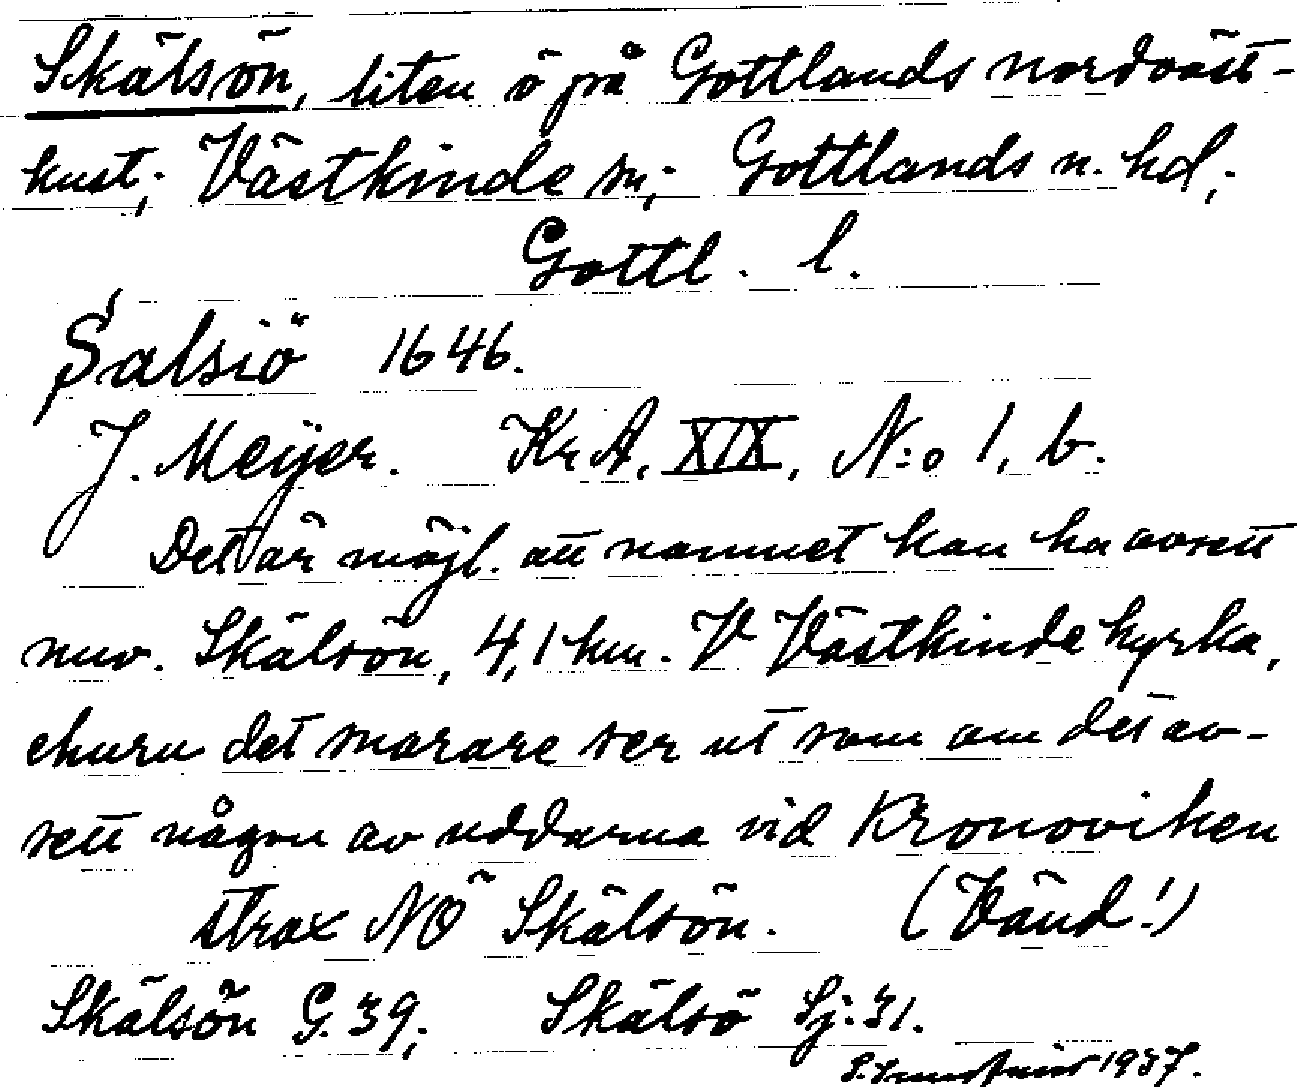 Skälsön, liten ö på Gottlands nordväst-
kust; Västkinde sn; Gottlands n. hd,
Gottl. l.
Salsiö 1646.
J. Meijer. KrA, XIX, N:o 1, b.
Det är möjl. att namnet kan ha avsett
nuv. Skälsön, 4,1 km. V Västkinde kyrka,
ehuru det snarare ser ut som om det av-
sett någon av uddarna vid Kronoviken
strax NÖ Skälsön. (Vänd!)
Skälsön G. 39; Skälsö Sj: 31.
1937.